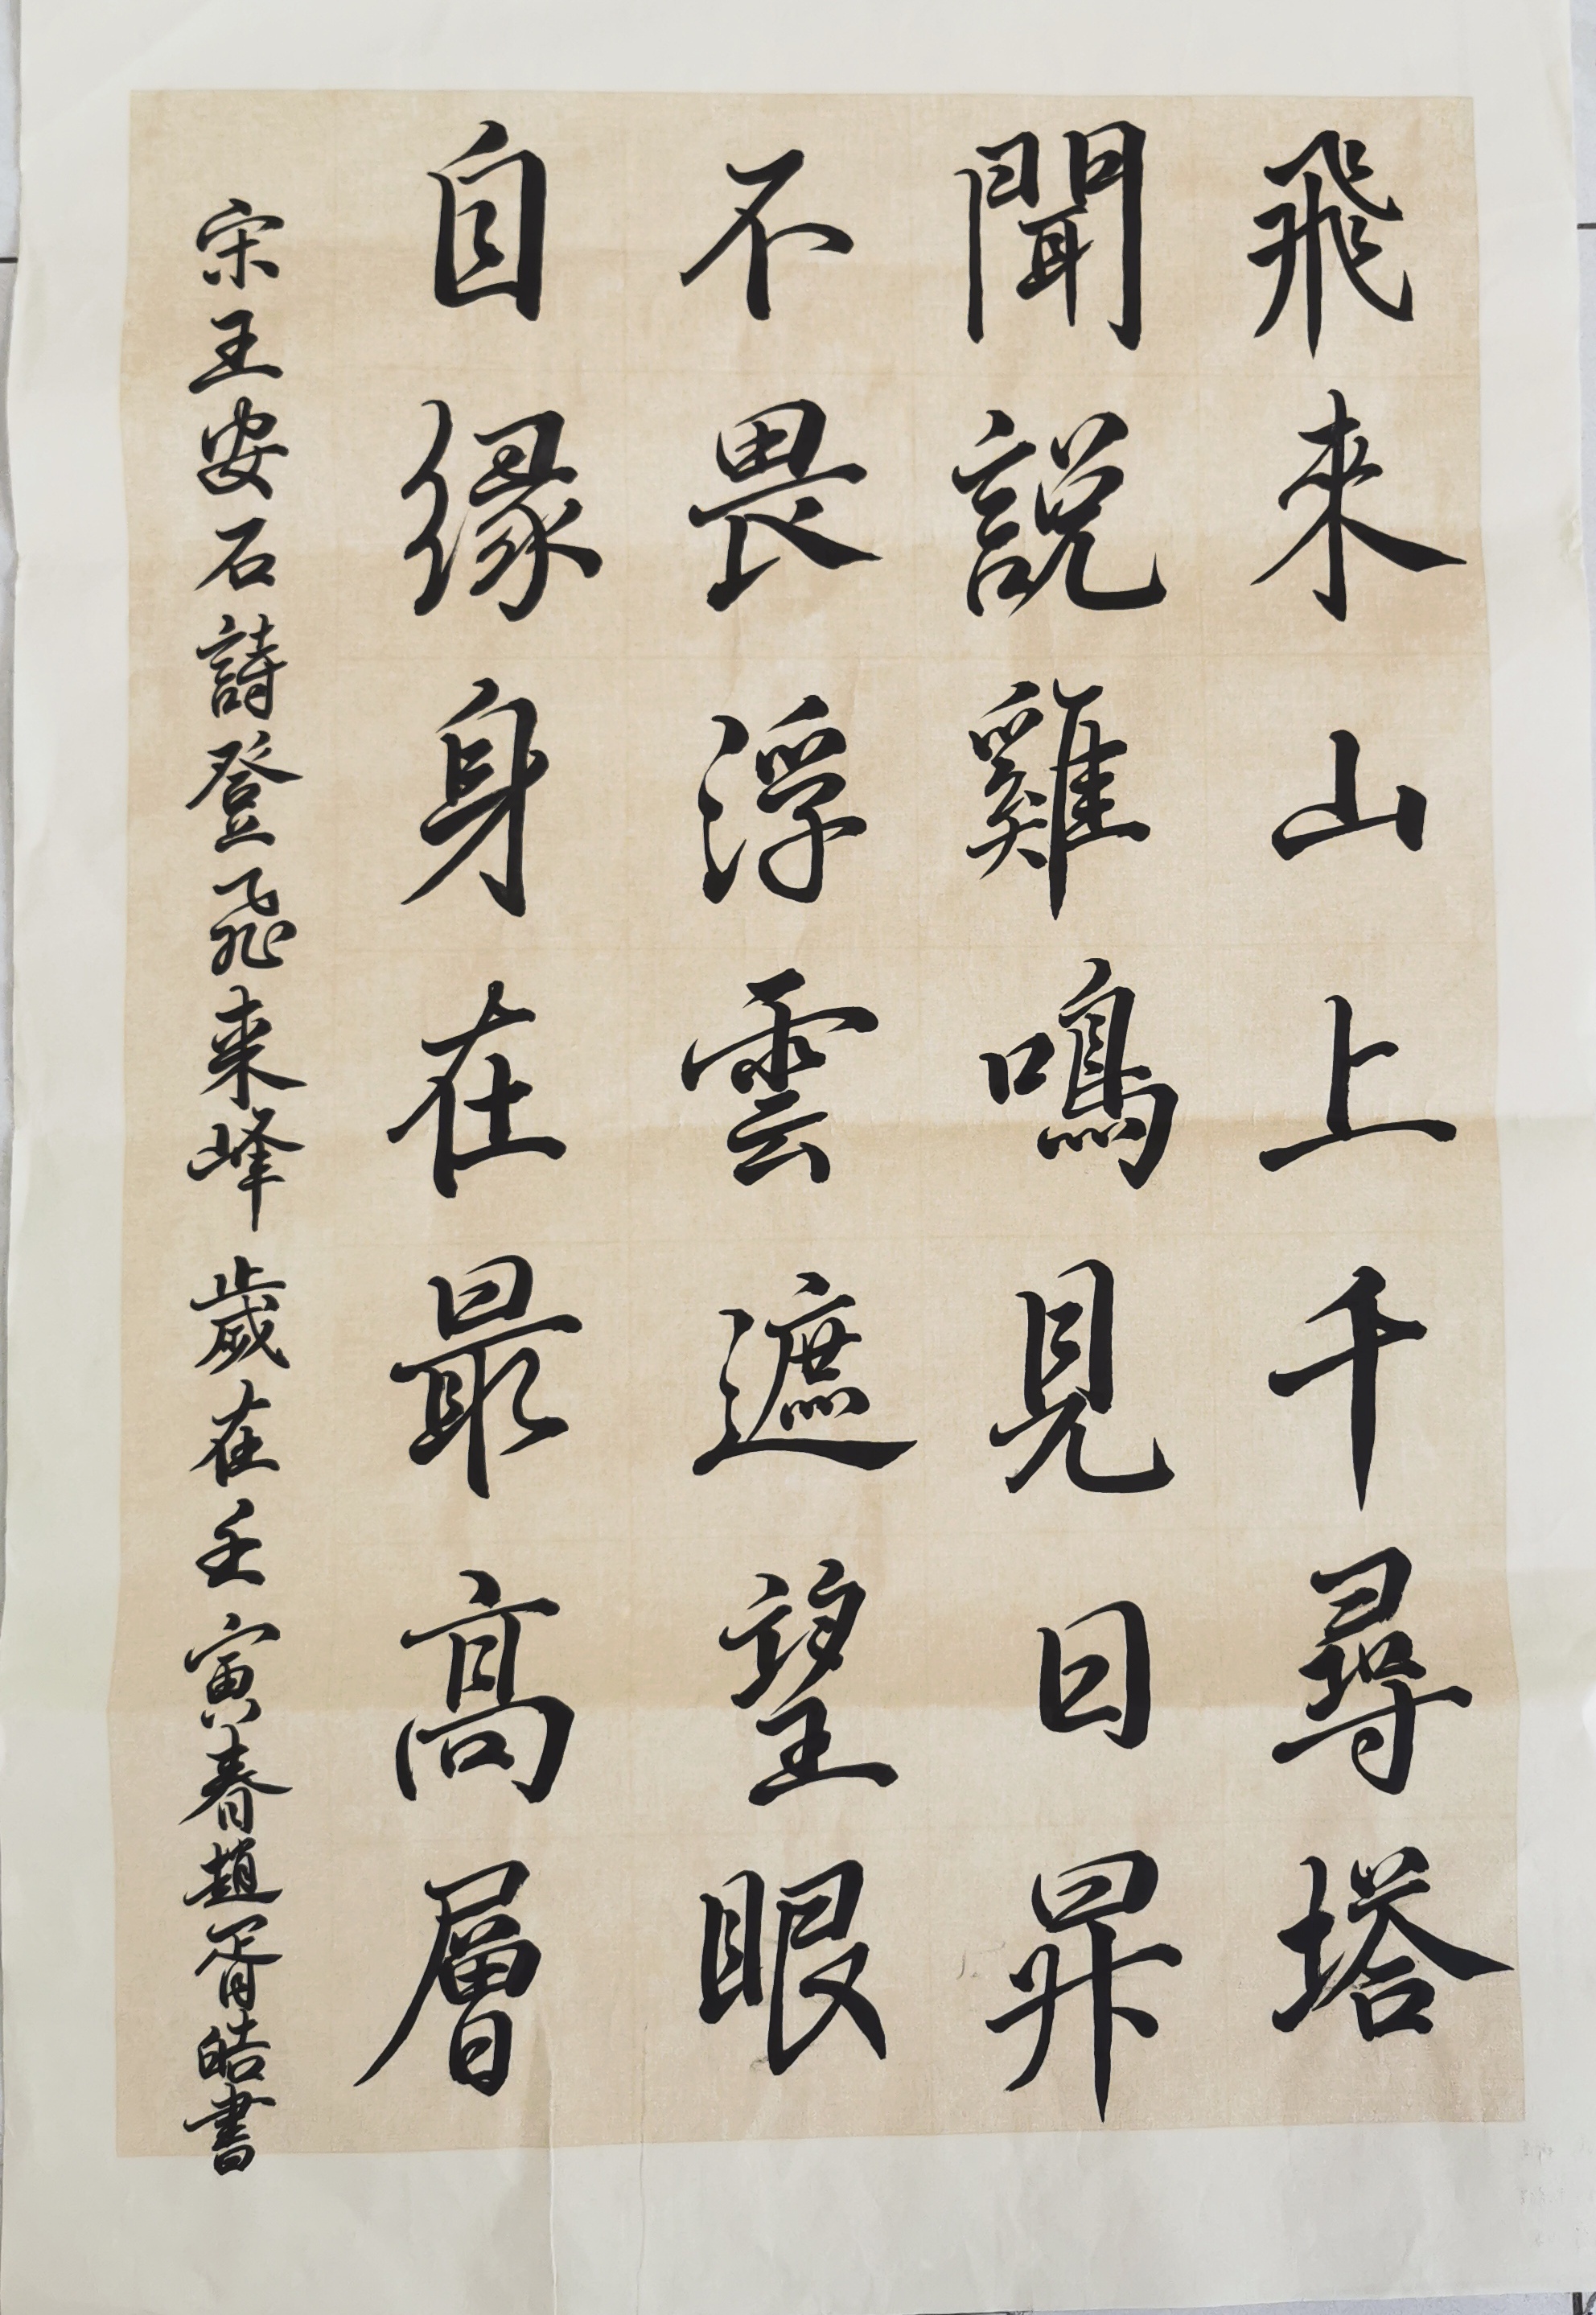 飛來山上千尋塔
聞說雞鳴見日昇
不畏浮雲遮望眼
自緣身在最高層
宋王安石詩登飛来峰 歲在壬寅春趙胥皓書